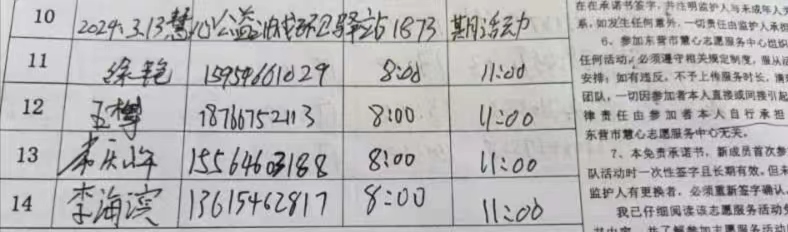 10 2024.3.13慧心公益 驿站1873期活动
11 徐艳 15954661029 8:00 11:00
12 18766752113 8:00 11:00
13 15564603188 8:00 11:00
14 李海滨 13615462817 8:00 11:00
在在承诺书签字，并注明监护人与未成年人关
系，如发生任何意外，一切责任由监护人承担
6、参加东营市慧心志愿服务中心组织
任何活动，必须遵守相关规定制度，服从
安排；如有违反，不予上传服务时长，清
团队，一切因参加者本人直接或间接引起
律责任由参加者本人自行承担
东营市慧心志愿服务中心无关。
7、本免责承诺书，新成员首次参
队活动时一次性签字且长期有效，但未
监护人有更换者，必须重新签字确认。
我已仔细阅读该志愿服务活动
其内容，并了解参加志愿服务活动